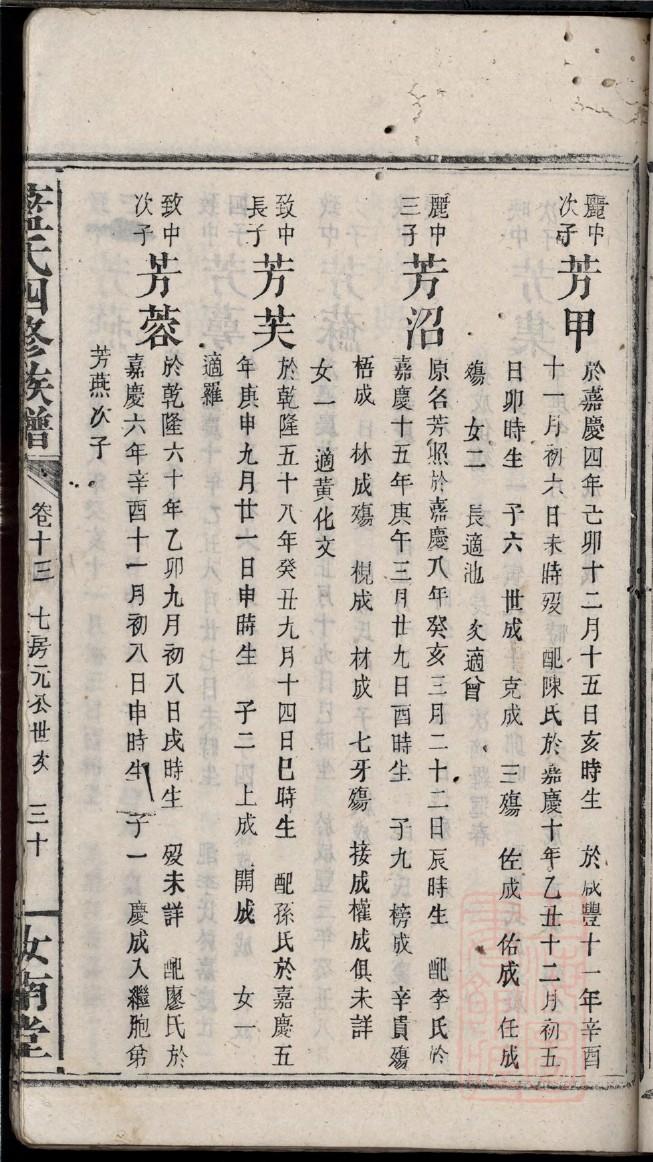 麗中次子 芳甲 於嘉慶四年己卯十二月十五日亥時生 於咸豐十一年辛酉
十一月初六日未時歿 配陳氏於嘉慶十年乙丑十二月初五
日卯時生 子六 世成 克成 三殤 佐成 佑成 任成
殤 女二 長適池 次適曾
麗中三子 芳沼 原名芳照於嘉慶八年癸亥三月二十二日辰時生 配李氏於
嘉慶十五年庚午三月廿九日酉時生 子九 榜成 辛貴殤
梧成 林成殤 梘成 材成 子七牙殤 接成權成俱未詳
女一 適黃化文
致中長子 芳芙 於乾隆五十八年癸丑九月十四日巳時生 配孫氏於嘉慶五
年庚申九月廿一日申時生 子二 上成 開成 女一
適羅
致中次子 芳蓉 於乾隆六十年乙卯九月初八日戌時生 歿未詳 配廖氏於
嘉慶六年辛酉十一月初八日申時生 子一 慶成入繼胞弟
芳燕次子
藍氏四修族譜 卷十三 七房元公世亥 三十 汝南堂